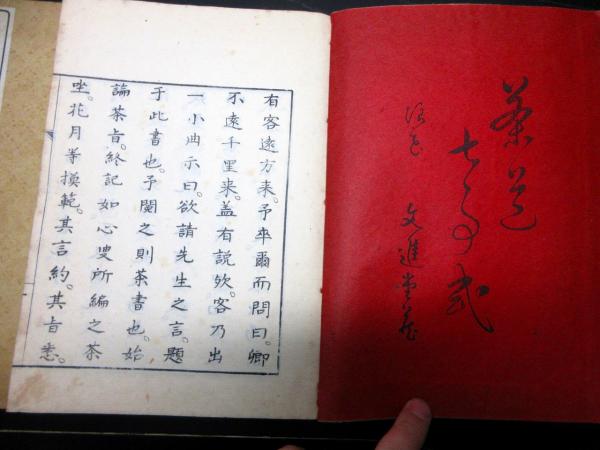 茶道七事式
浪花 文進堂蔵
有客遠方来。予卒爾而問曰。卿
不遠千里来。蓋有説欤。客乃出
一小冊示曰。欲請先生之言。題
于此書也。予閲之則茶書也。始
論茶旨。終記如心叟所編之茶
坐。花月等模範。其言約。其旨悉。